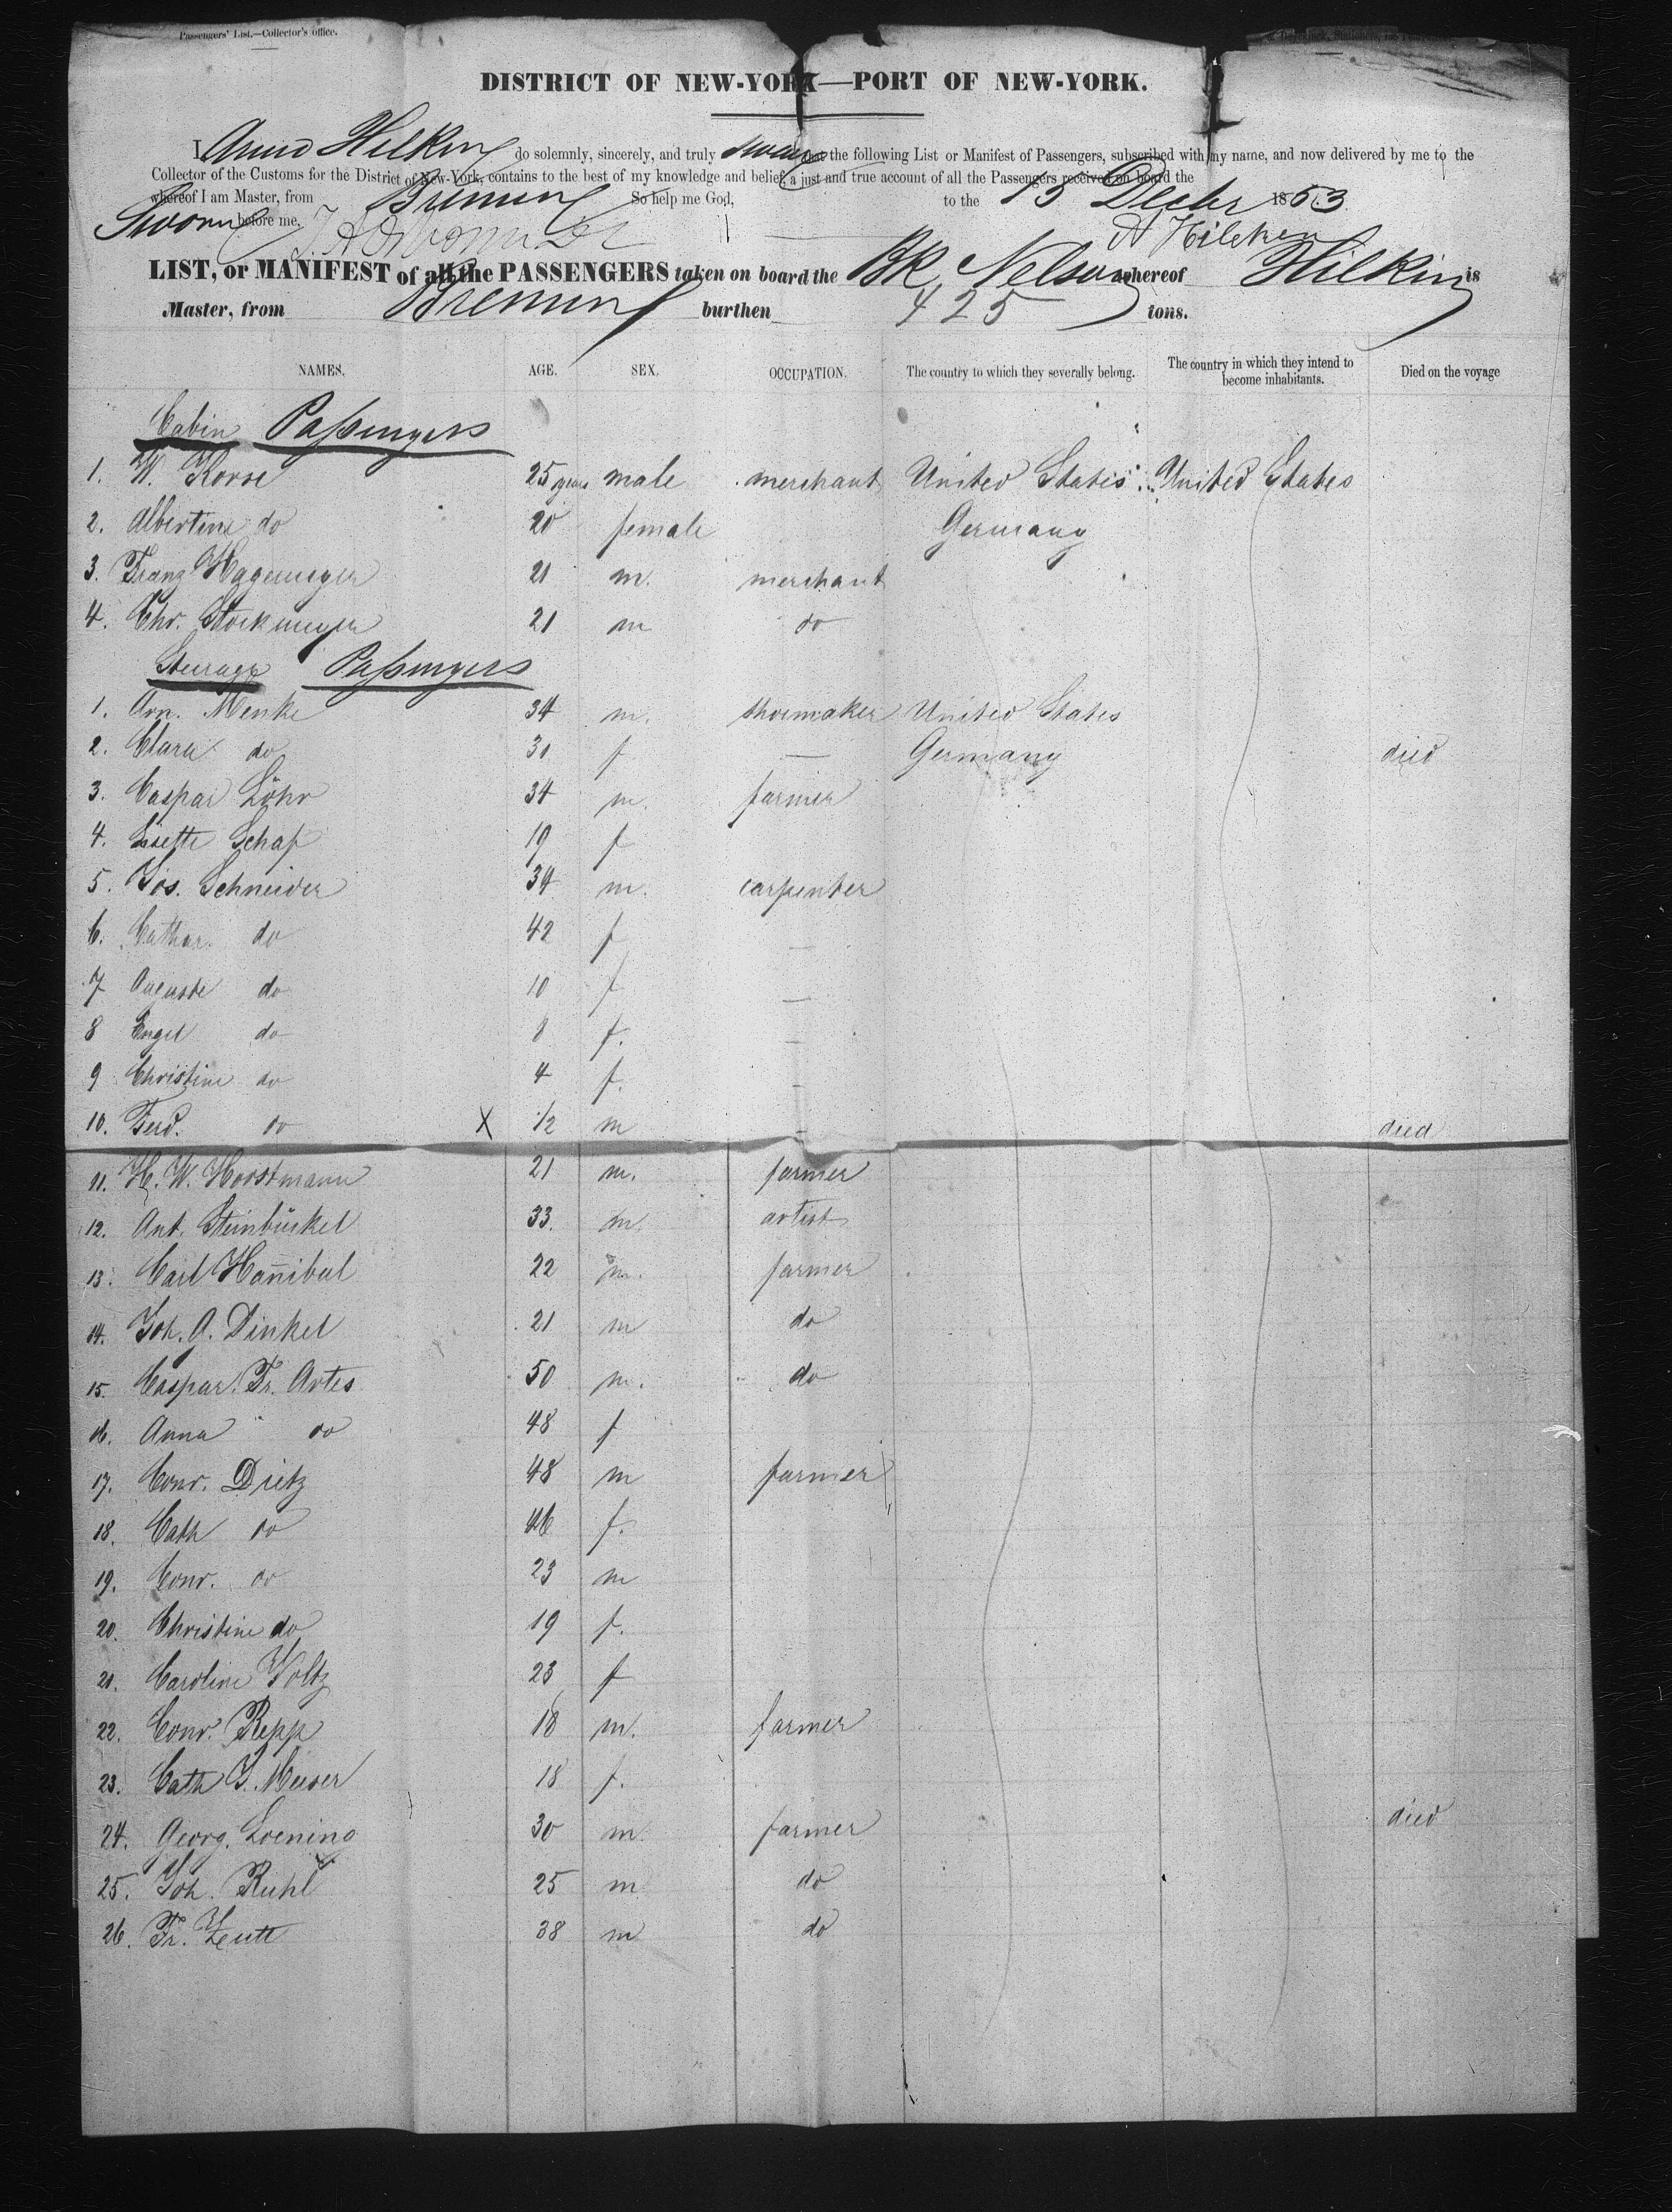 Passengers' List.—Collector's office.
DISTRICT OF NEW-YORK—PORT OF NEW-YORK.
I Hilken do solemnly, sincerely, and truly swear that the following List or Manifest of Passengers, subscribed with my name, and now delivered by me to the
Collector of the Customs for the District of New-York, contains to the best of my knowledge and belief, a just and true account of all the Passengers received on board the
whereof I am Master, from Bremen So help me God,
to the 13 Decbr 1853.
Sworn before me,
A Hilcken
LIST, or MANIFEST of all the PASSENGERS taken on board the Bk Nelson whereof Hilken is
Master, from Bremen burthen 425 tons.
NAMES. AGE. SEX. OCCUPATION. The country to which they severally belong. The country in which they intend to become inhabitants. Died on the voyage
Cabin Passengers
1. W. Korse 25 years male merchant United States United States
2. Albertine do 20 female Germany
3. Franz Hagemeyer 21 m. merchant
4. Chr. Stockmeyer 21 m do
Steerage Passengers
1. Arn. Menke 34 m. shoemaker United States
2. Clara do 30 f — Germany died
3. Caspar Löhr 34 m. farmer
4. Lisette Schaf 19 f
5. Jos. Schneider 34 m. carpenter
6. Cathar. do 42 f —
7 Auguste do 10 f —
8 Engel do 8 f. —
9 Christine do 4 f. —
10. Ferd. do X 1/2 m — died
11. H. W. Horstmann 21 m. farmer
12. Ant. Steinbückel 33. m. artist
13. Carl Hañibal 22 m. farmer
14. Joh. A. Dinkel 21 m do
15. Caspar Fr. Artes 50 m. do
16. Anna do 48 f
17. Conr. Dietz 48 m farmer
18. Cath do 46 f.
19. Conr. do 23 m
20. Christine do 19 f.
21. Caroline Voltz 23 f
22. Conr. Repp 18 m. farmer
23. Cath 18 f.
24. Georg. Loening 30 m. farmer died
25. Joh. Ruhl 25 m do
26. Fr. 38 m do